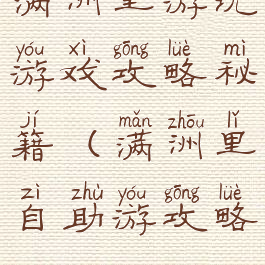 满洲里游玩
yóu xì gōng lüè mì
游戏攻略秘
jí mǎn zhōu lǐ
籍（满洲里
zì zhù yóu gōng lüè
自助游攻略